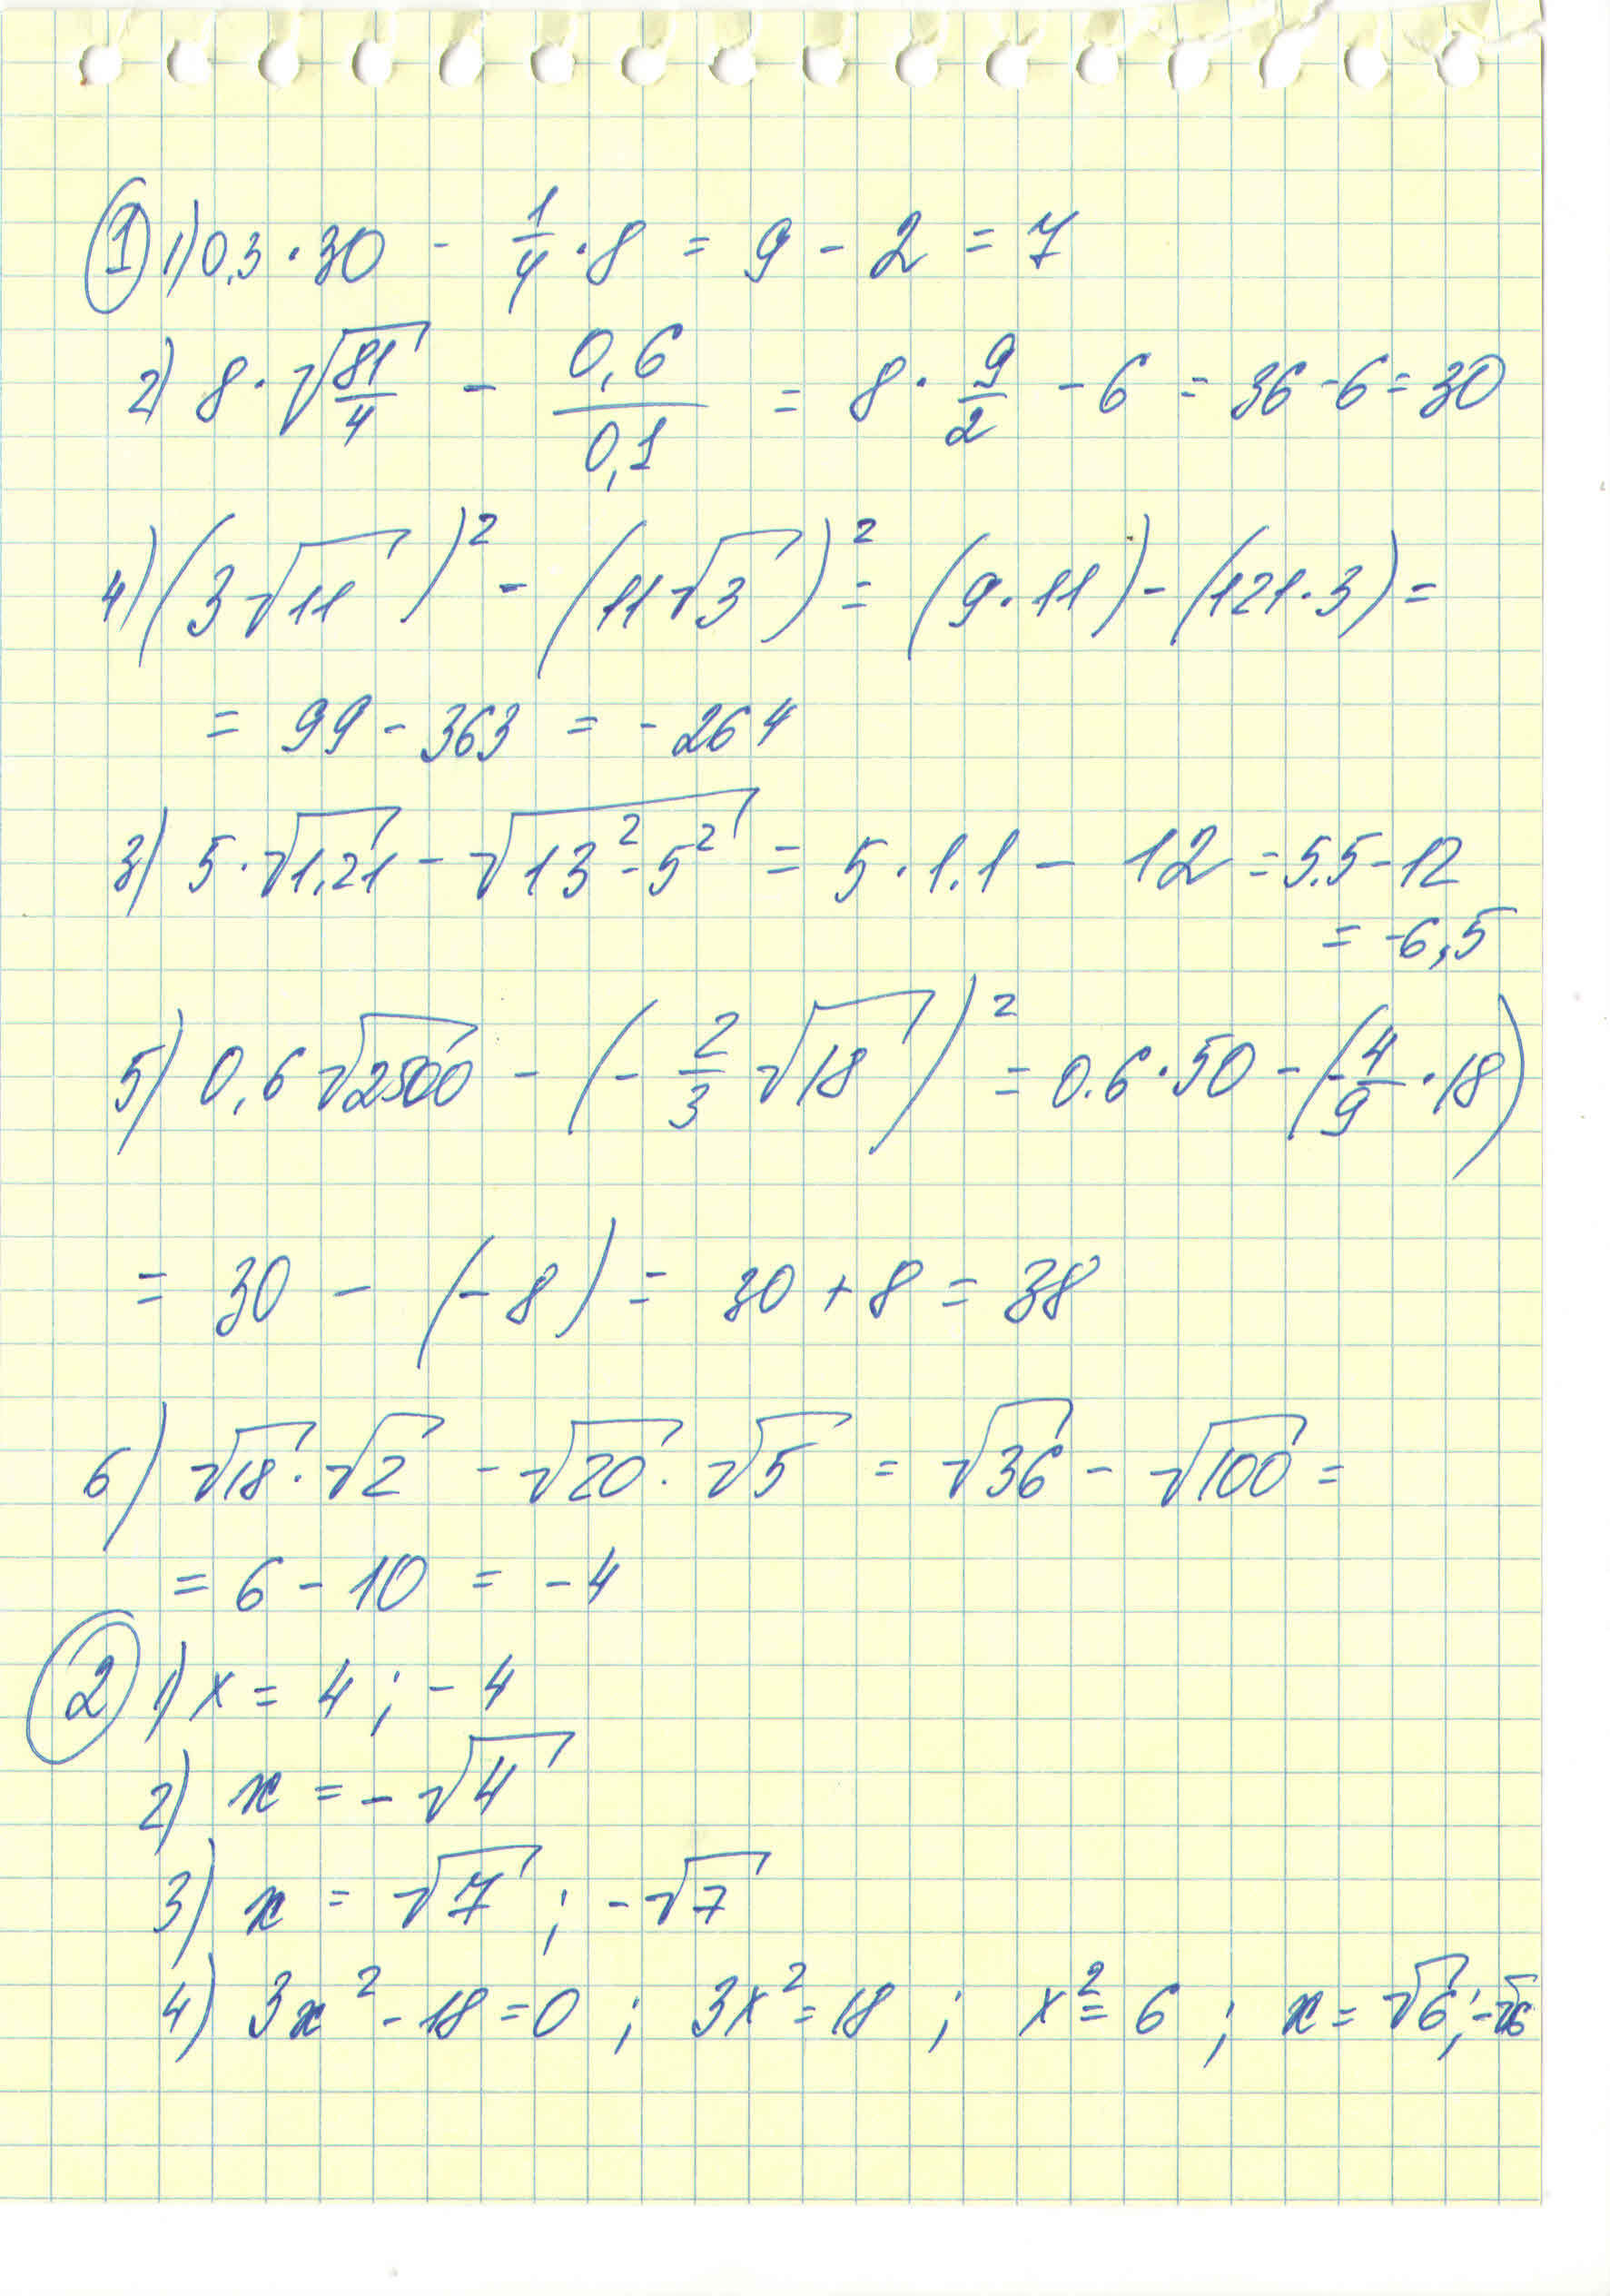 ① 1) 0,3 · 30 - 1/4 · 8 = 9 - 2 = 7
2) 8 · √(81/4) - 0,6/0,1 = 8 · 9/2 - 6 = 36 - 6 = 30
4) (3√11)² - (11√3)² = (9 · 11) - (121 · 3) =
= 99 - 363 = - 264
3) 5 · √1,21 - √(13² - 5²) = 5 · 1.1 - 12 = 5.5 - 12
= -6,5
5) 0,6 √2500 - (- 2/3 √18)² = 0.6 · 50 - (- 4/9 · 18)
= 30 - (- 8) = 30 + 8 = 38
6) √18 · √2 - √20 · √5 = √36 - √100 =
= 6 - 10 = - 4
② 1) x = 4 ; - 4
2) x = - √4
3) x = √7 ; - √7
4) 3x² - 18 = 0 ; 3x² = 18 ; x² = 6 ; x = √6 ; -√6